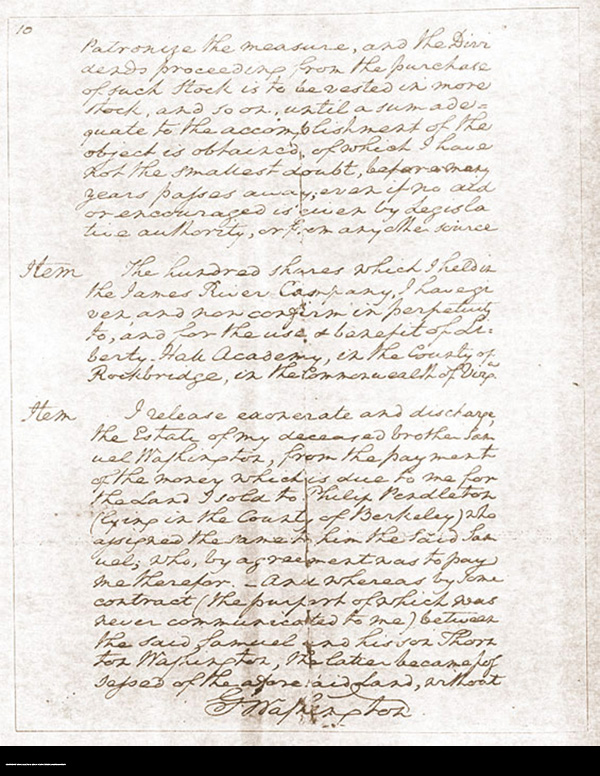 10
Patronize the measure, and the Divi
dends proceeding from the purchase
of such Stock is to be vested in more
stock, and so on, until a sum ade=
quate to the accomplishment of the
object is obtained, of which I have
not the smallest doubt, before many
years passes away; even if no aid
or encouraged is given by Legisla
tive authority, or from any other source
Item The hundred shares which I held in
the James River Company, I have gi
ven and now confirm in perpetuity
to, and for the use & benefit of Li=
berty-Hall Academy, in the County of
Rockbridge, in the Commonwealth of Virga.
Item I release exonerate and discharge,
the Estate of my deceased brother Sam
uel Washington, from the payment
of the money which is due to me for
the Land I sold to Philip Pendleton
(lying in the County of Berkeley) who
assigned the same to him the said Sam
uel; who, by agreement was to pay
me therefor. – And whereas by some
contract (the purport of which was
never communicated to me) between
the said Samuel and his son Thorn
ton Washington, the latter became pos
sessed of the aforesaid Land, without
G Washington